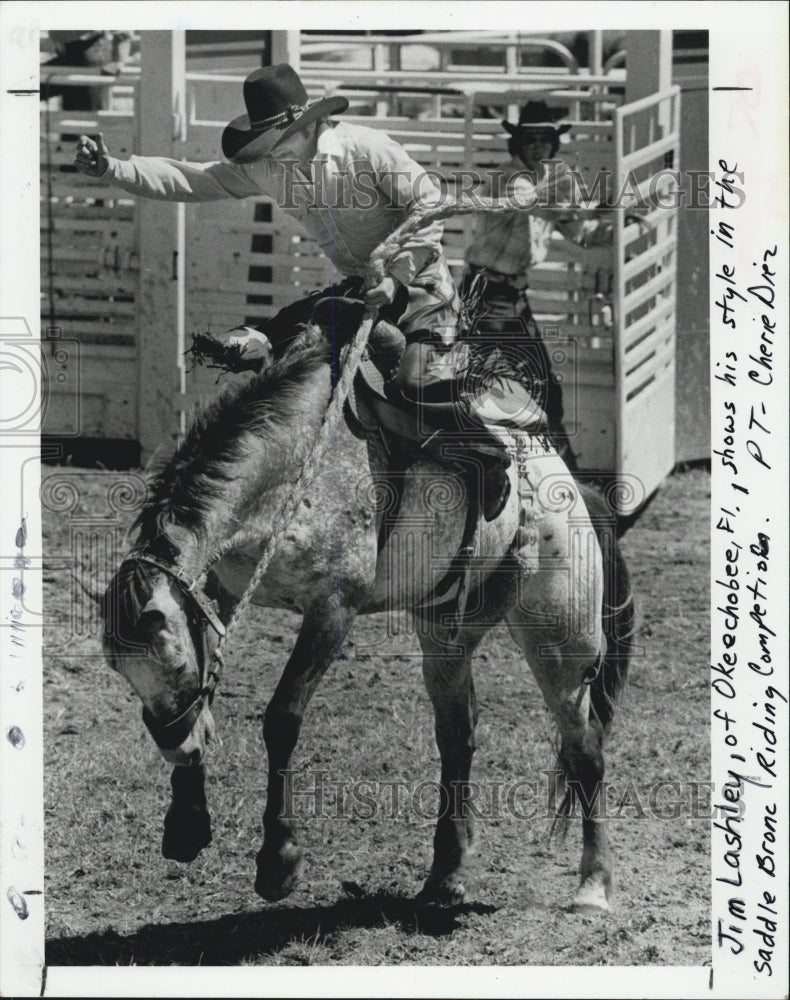 HISTORIC IMAGES
HISTORIC IMAGES
Jim Lashley, of Okeechobee, Fl, shows his style in the
saddle Bronc Riding Competion. PT- Cherie Diez